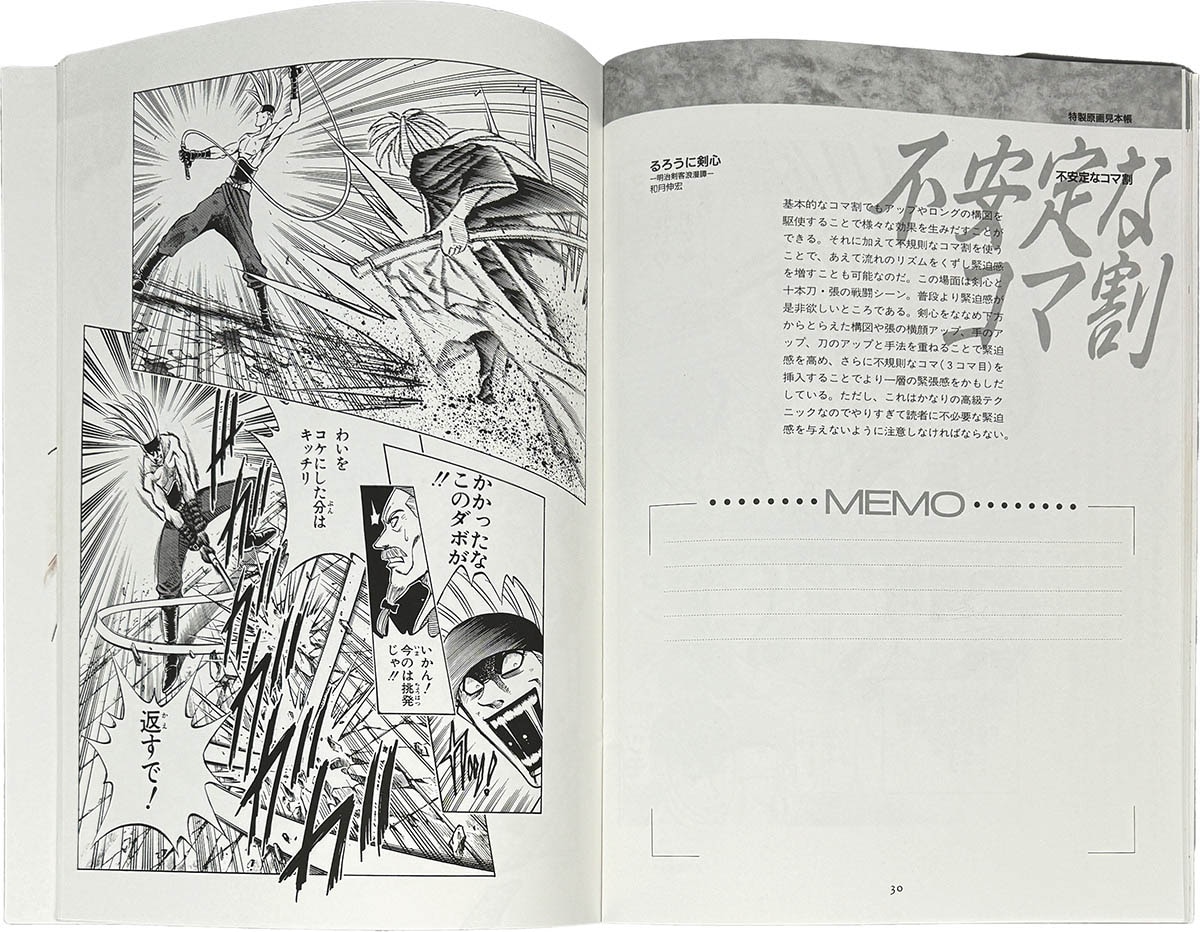 特製原画見本帳
不安定な
コマ割
不安定なコマ割
るろうに剣心
―明治剣客浪漫譚―
和月伸宏
基本的なコマ割でもアップやロングの構図を
駆使することで様々な効果を生みだすことが
できる。それに加えて不規則なコマ割を使う
ことで、あえて流れのリズムをくずし緊迫感
を増すことも可能なのだ。この場面は剣心と
十本刀・張の戦闘シーン。普段より緊迫感が
是非欲しいところである。剣心をななめ下方
からとらえた構図や張の横顔アップ、手のア
ップ、刀のアップと手法を重ねることで緊迫
感を高め、さらに不規則なコマ(3コマ目)を
挿入することでより一層の緊張感をかもしだ
している。ただし、これはかなりの高級テク
ニックなのでやりすぎて読者に不必要な緊迫
感を与えないように注意しなければならない。
MEMO
30
かかったな
このダボが
!!
いかん!
今のは挑発
じゃ!!
わいを
コケにした分は
キッチリ
返すで!